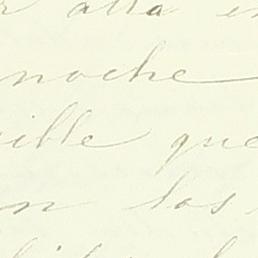 alta en
noche
ible que
n los